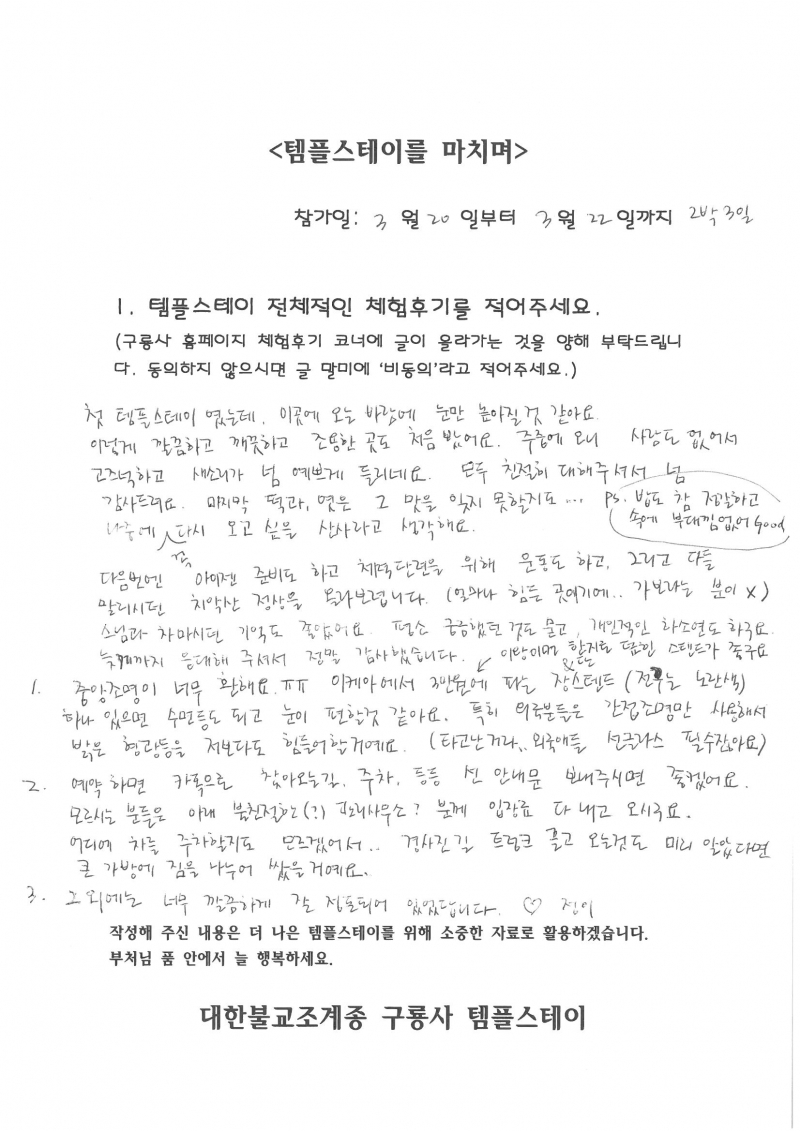 <템플스테이를 마치며>
참가일: 3 월 20 일부터 3월 22 일까지 2박 3일
1. 템플스테이 전체적인 체험후기를 적어주세요.
(구룡사 홈페이지 체험후기 코너에 글이 올라가는 것을 양해 부탁드립니
다. 동의하지 않으시면 글 말미에 ‘비동의’라고 적어주세요.)
첫 템플스테이 였는데, 이곳에 오는 바람에 눈만 높아질것 같아요.
이렇게 깔끔하고 깨끗하고 조용한 곳도 처음 봤어요. 주중에 오니 사람도 없어서
고즈넉하고 새소리가 넘 예쁘게 들리네요. 모두 친절히 대해주셔서 넘
감사드려요. 마지막 떡과, 엿은 그 맛을 잊지 못할지도...
ps. 밥도 참 정갈하고
속에 부대낌없어 Good
나중에 꼭 다시 오고 싶을 산사라고 생각해요.
다음번엔 아이젠 준비도 하고 체력단련을 위해 운동도 하고, 그리고 다들
말리시던 치악산 정상을 올라보렵니다. (얼마나 힘든 곳이기에.. 가보라는 분이 X)
스님과 차마시던 기억도 좋았어요. 평소 궁금했던것도 묻고, 개인적인 하소연도 하구요.
늦게까지 응대해 주셔서 정말 감사했습니다.
이왕이면 한지로 된 스탠드가 좋구요
1. 중앙조명이 너무 환해요.ㅠㅠ 이케아에서 3만원에 파는 장스텐드 (전구는 노란색)
하나 있으면 수면등도 되고 눈이 편할것 같아요. 특히 외국분들은 간접조명만 사용해서
밝은 형광등을 저보다도 힘들어할거예요. (타고난거라.. 외국애들 선글라스 필수잖아요)
2. 예약하면 카톡으로 찾아오는길, 주차, 등등 신 안내문 보내주시면 좋겠어요.
모르시는 분들은 아래 불친절한(?) 관리사무소? 분께 입장료 다 내고 오시구요.
어디에 차를 주차할지도 모르겠어서.. 경사진길 트렁크 끌고 오는것도 미리 알았다면
큰 가방에 짐을 나누어 쌌을거예요.
3. 그 외에는 너무 깔끔하게 잘 정돈되어 있었답니다. ♡ 정이
작성해 주신 내용은 더 나은 템플스테이를 위해 소중한 자료로 활용하겠습니다.
부처님 품 안에서 늘 행복하세요.
대한불교조계종 구룡사 템플스테이